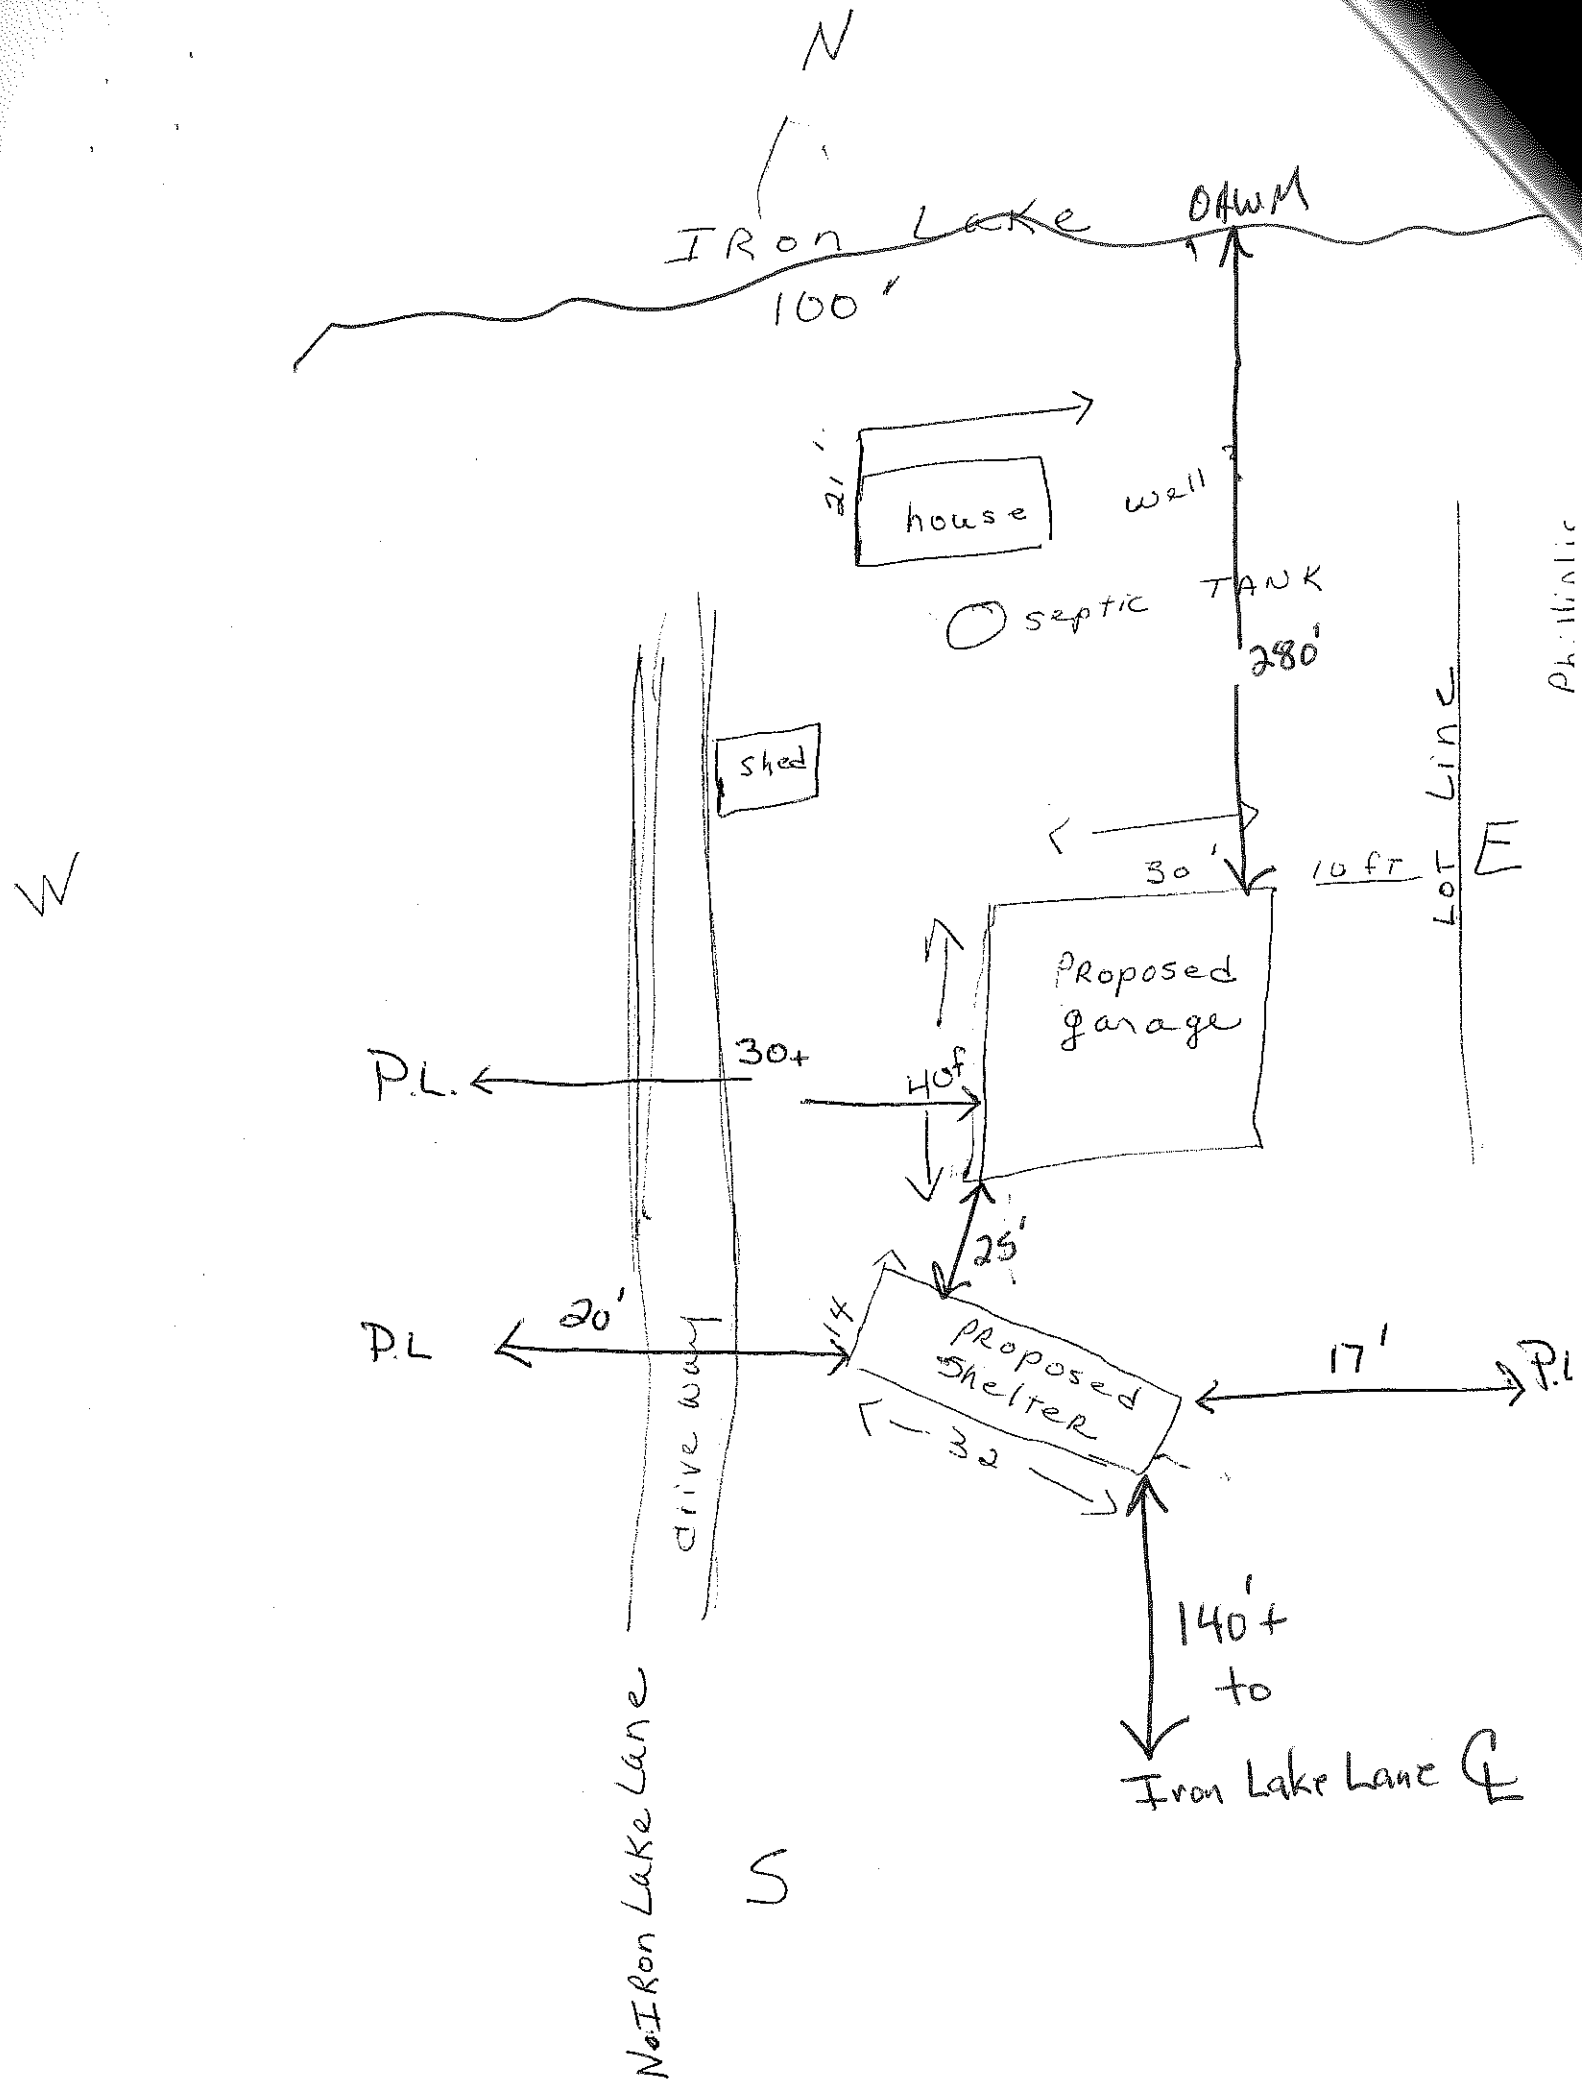 N
IRon Lake
OHWM
100'
21'
house
well
septic TANK
280'
shed
LOT Line
W
30'
10 fT
E
PRoposed
garage
P.L.
30+
40f
25'
20'
P.L
14
PRoposed
ShelTeR
17'
P.L
32
drive way
140'+
to
Iron Lake Lane ℄
No. IRon Lake Lane
S